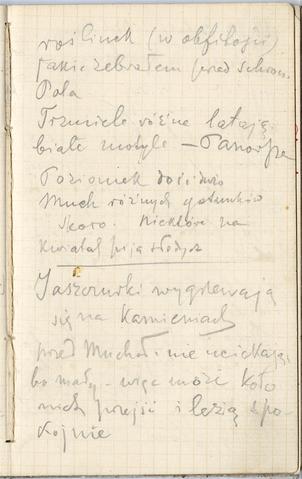 roślinek (w obfitości)
jakie zebrałem przed schron.
Pola
Trzmiele różne latają
białe motyle – Panorpa
Poziomek dość dużo
Much różnych gatunków
sporo. Niektóre na
kwiatach piją słodycz
Jaszczurki wygrzewają
się na kamieniach
przed Muchą i nie uciekają
bo mały – więc może koło
nich przejść i leżą spo-
kojnie